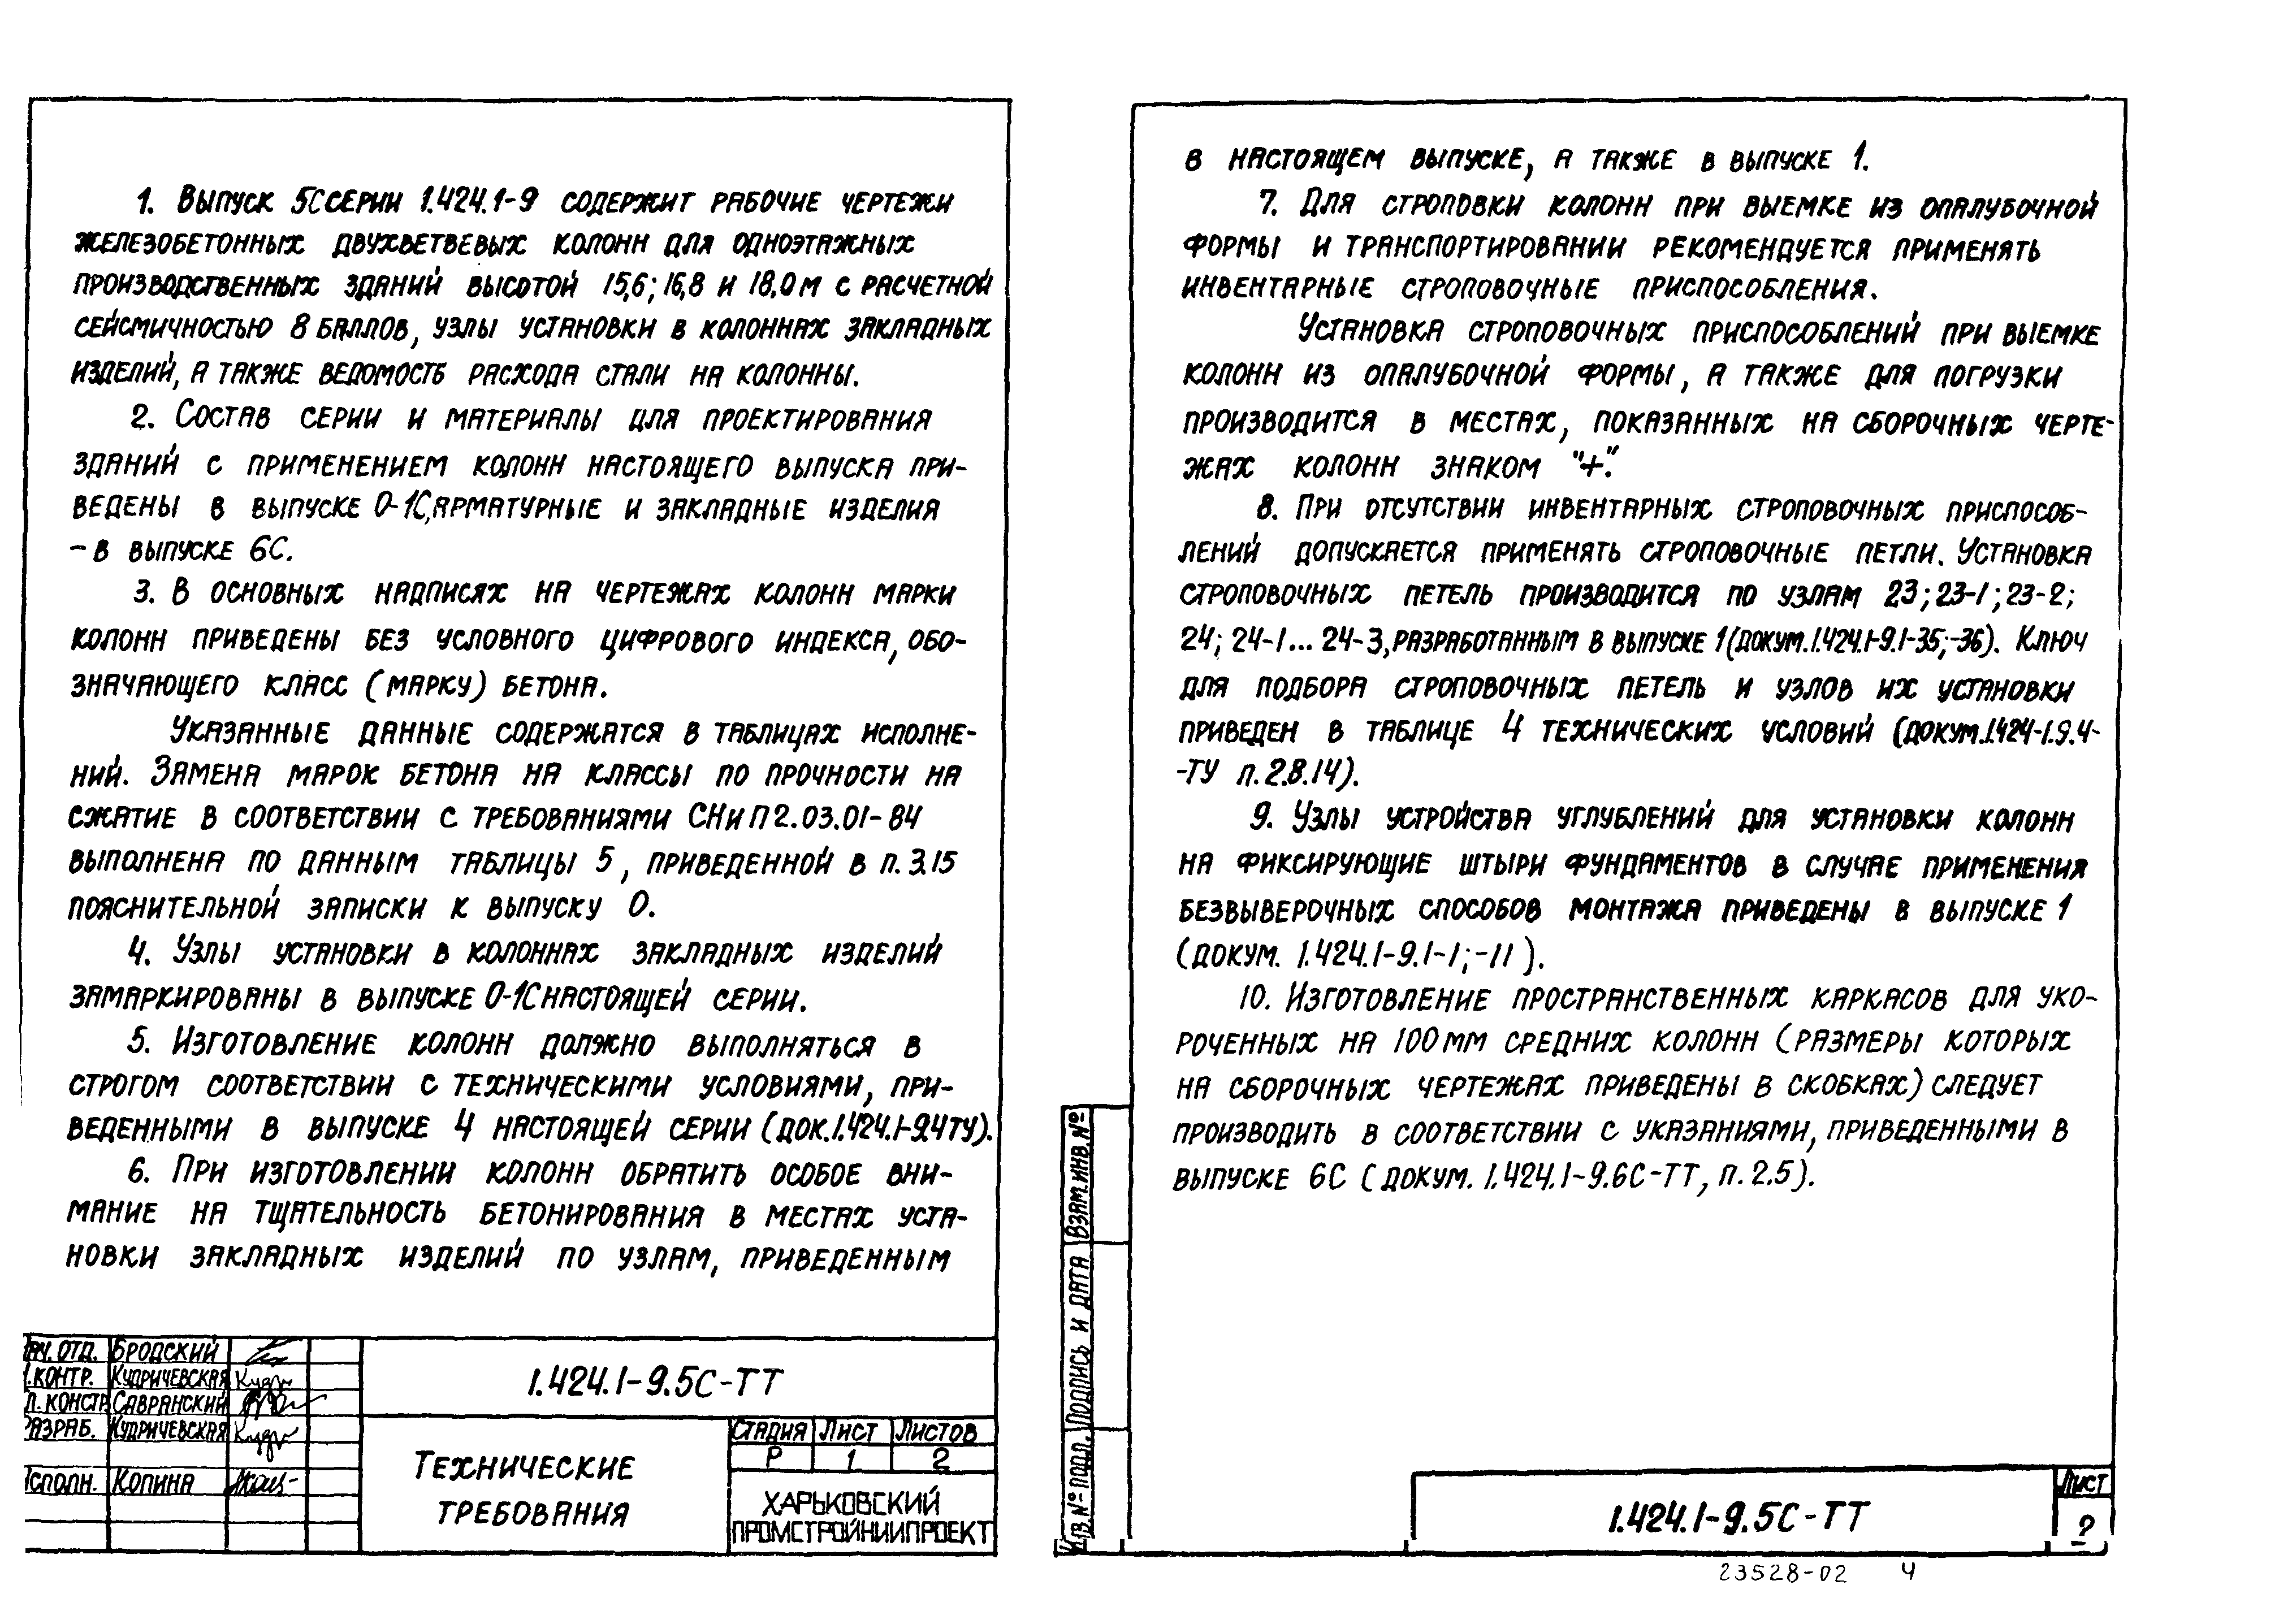 1. Выпуск 5С серии 1.424.1-9 содержит рабочие чертежи
железобетонных двухветвевых колонн для одноэтажных
производственных зданий высотой 15,6; 16,8 и 18,0 м с расчетной
сейсмичностью 8 баллов, узлы установки в колоннах закладных
изделий, а также ведомость расхода стали на колонны.
2. Состав серии и материалы для проектирования
зданий с применением колонн настоящего выпуска при-
ведены в выпуске 0-1С, арматурные и закладные изделия
- в выпуске 6С.
3. В основных надписях на чертежах колонн марки
колонн приведены без условного цифрового индекса, обо-
значающего класс (марку) бетона.
Указанные данные содержатся в таблицах исполне-
ний. Замена марок бетона на классы по прочности на
сжатие в соответствии с требованиями СНиП 2.03.01-84
выполнена по данным таблицы 5, приведенной в п. 3.15
пояснительной записки к выпуску 0.
4. Узлы установки в колоннах закладных изделий
замаркированы в выпуске 0-1С настоящей серии.
5. Изготовление колонн должно выполняться в
строгом соответствии с техническими условиями, при-
веденными в выпуске 4 настоящей серии (док.1.424.1-9.4ТУ).
6. При изготовлении колонн обратить особое вни-
мание на тщательность бетонирования в местах уста-
новки закладных изделий по узлам, приведенным
Нач. отд. Бродский
Н.контр. Кудричевская
Гл. констр Савранский
Разраб. Кудричевская
Исполн. Копина
1.424.1-9.5С-ТТ
Технические
требования
Стадия Лист Листов
Р 1 2
ХАРЬКОВСКИЙ
ПРОМСТРОЙНИИПРОЕКТ
в настоящем выпуске, а также в выпуске 1.
7. Для строповки колонн при выемке из опалубочной
формы и транспортировании рекомендуется применять
инвентарные строповочные приспособления.
Установка строповочных приспособлений при выемке
колонн из опалубочной формы, а также для погрузки
производится в местах, показанных на сборочных черте-
жах колонн знаком "+".
8. При отсутствии инвентарных строповочных приспособ-
лений допускается применять строповочные петли. Установка
строповочных петель производится по узлам 23; 23-1; 23-2;
24; 24-1... 24-3, разработанным в выпуске 1 (докум.1.424.1-9.1-35;-36). Ключ
для подбора строповочных петель и узлов их установки
приведен в таблице 4 технических условий (докум.1.424-1.9.4-
-ТУ п. 2.8.14).
9. Узлы устройства углублений для установки колонн
на фиксирующие штыри фундаментов в случае применения
безвыверочных способов монтажа приведены в выпуске 1
(докум. 1.424.1-9.1-1;-11).
10. Изготовление пространственных каркасов для уко-
роченных на 100 мм средних колонн (размеры которых
на сборочных чертежах приведены в скобках) следует
производить в соответствии с указаниями, приведенными в
выпуске 6С (докум. 1.424.1-9.6С-ТТ, п. 2.5).
Взам.инв.№
Подпись и дата
Инв.№ подл.
1.424.1-9.5С-ТТ
Лист
2
23528-02 4